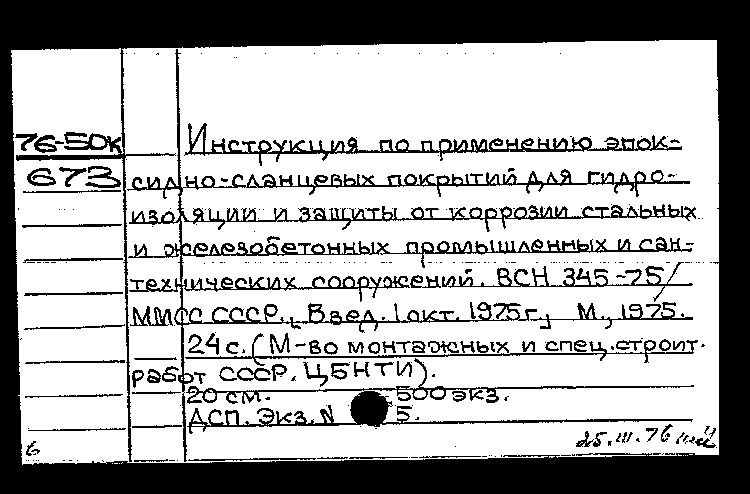 76-50к
673
Инструкция по применению эпок-
сидно-сланцевых покрытий для гидро-
изоляции и защиты от коррозии стальных
и железобетонных промышленных и сан-
технических сооружений. ВСН 345-75/
ММСС СССР. Введ. 1 окт. 1975г., М., 1975.
24 с. (М-во монтажных и спец. строит.
работ СССР. ЦБНТИ).
20 см. 500 экз.
ДСП. Экз. N 5.
25.III.76
6